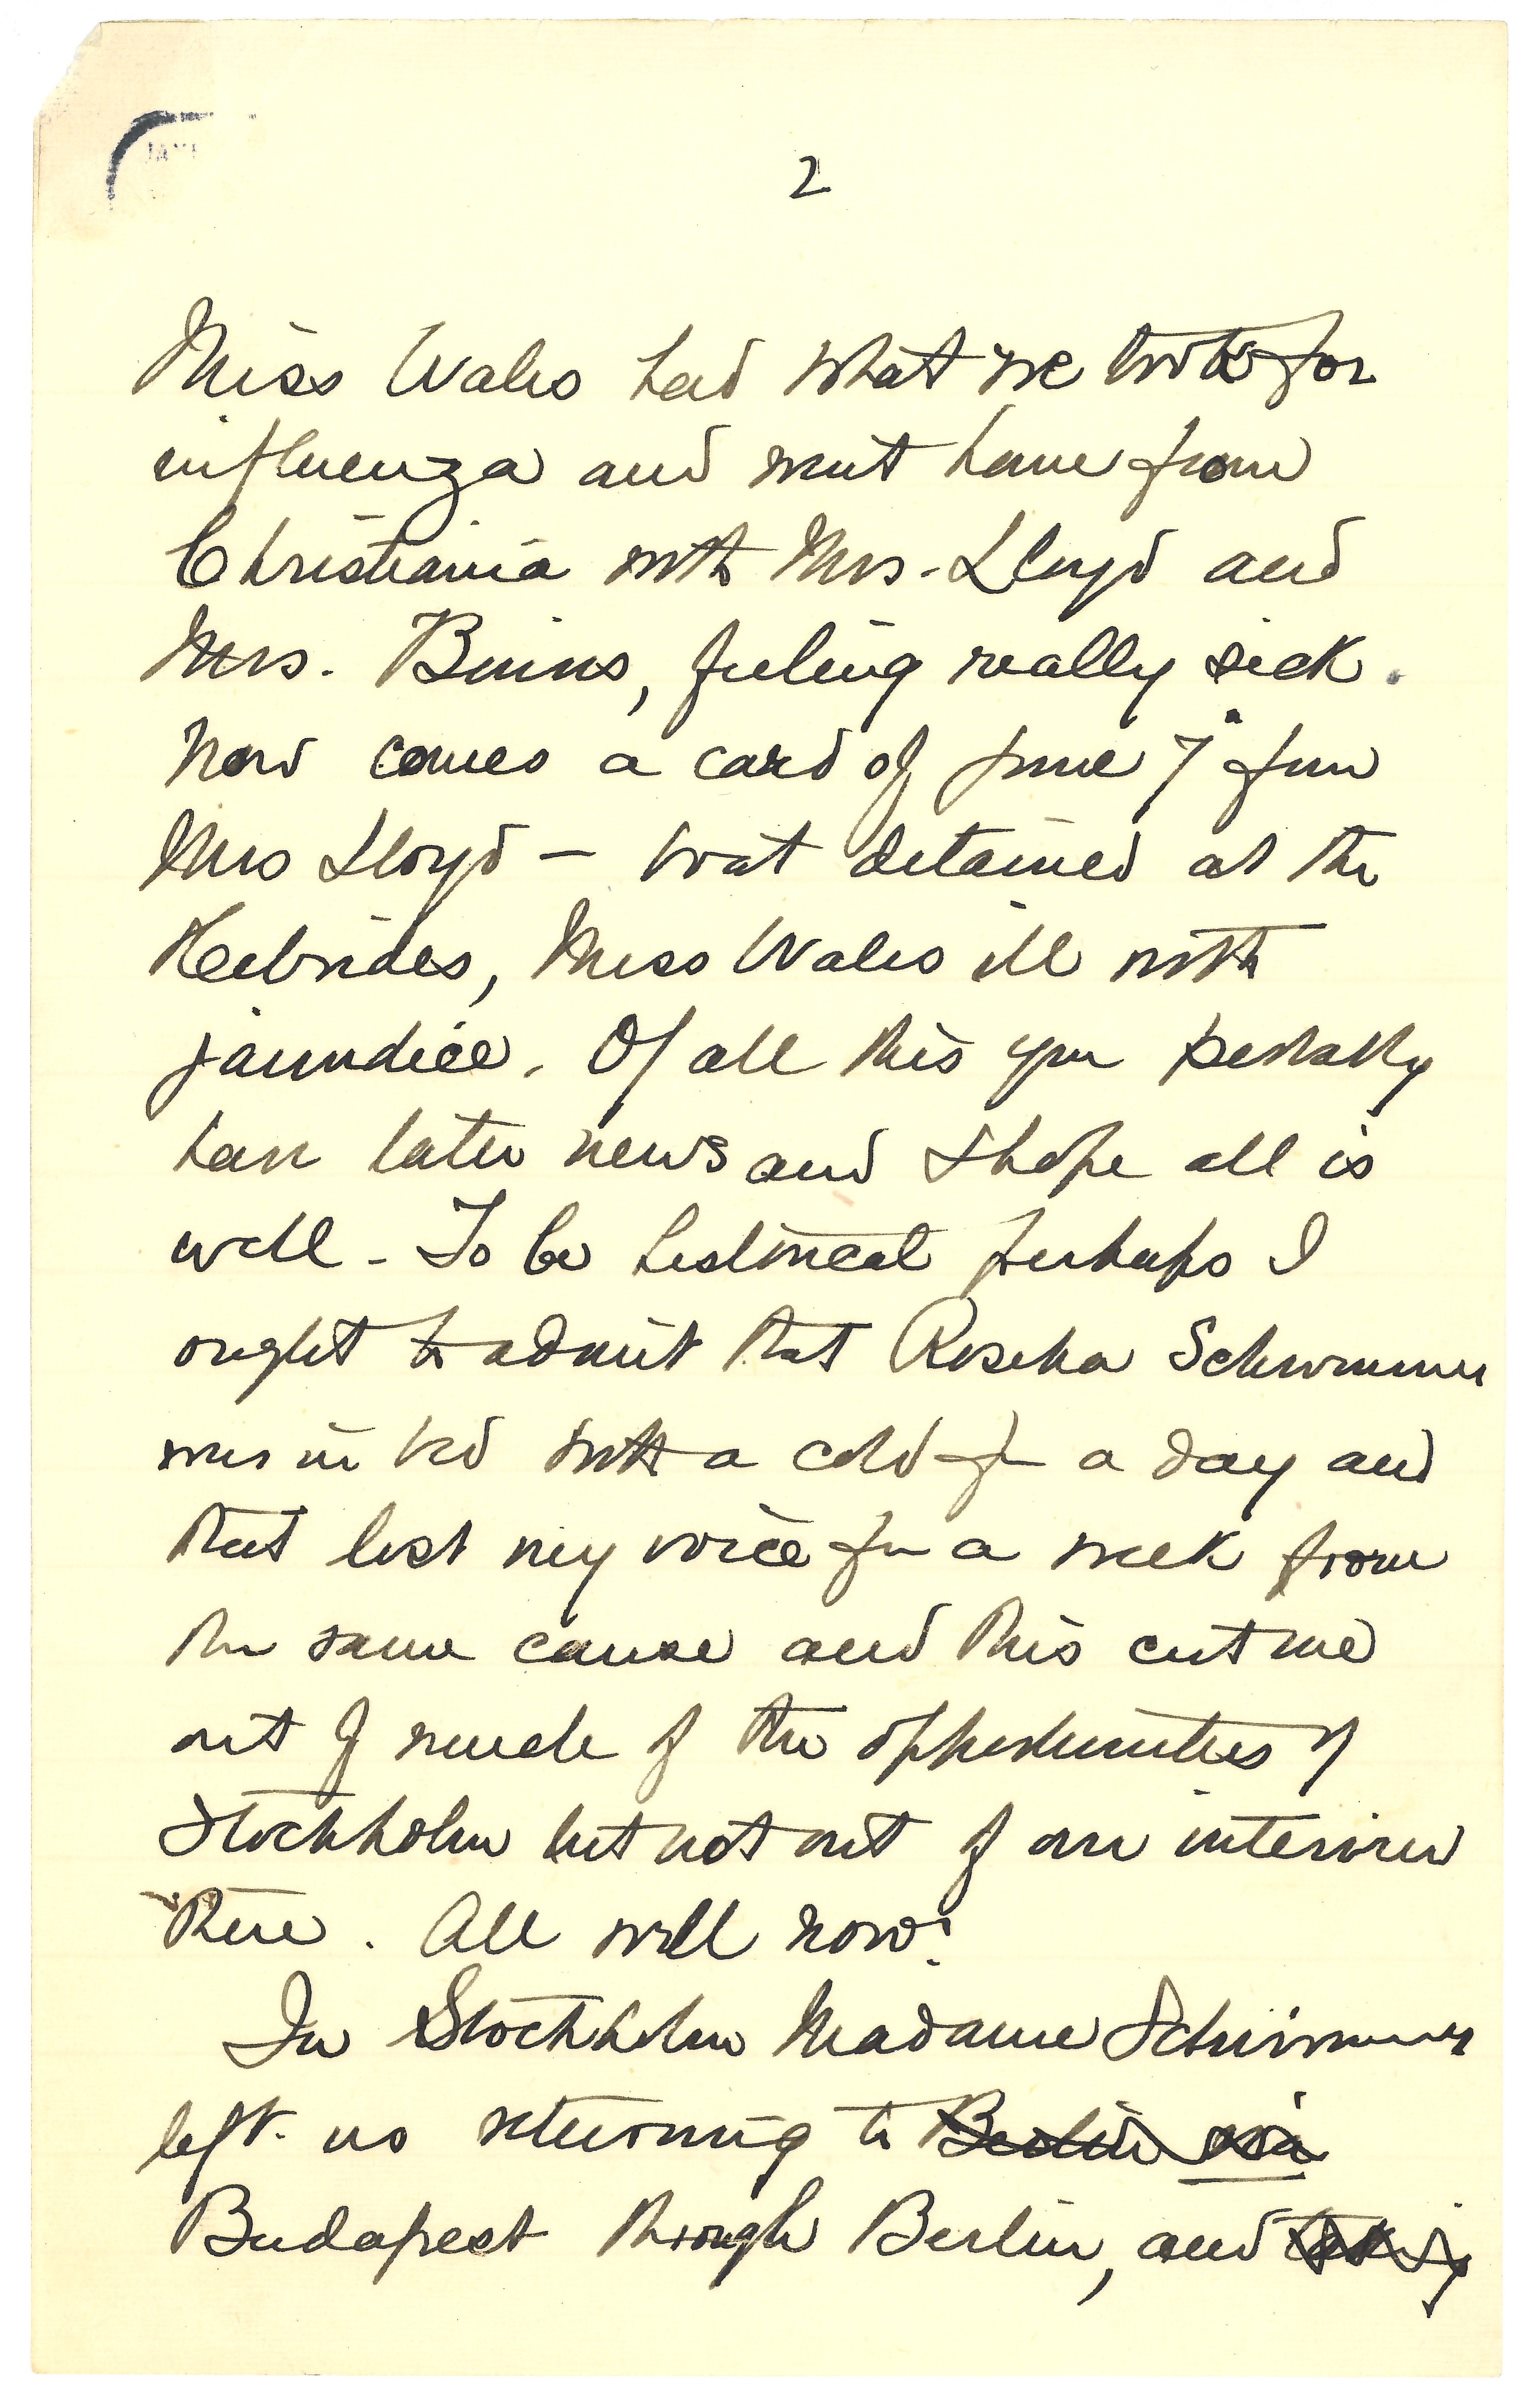 2
Miss Wales had what we took for
influenza and went home from
Christiania with Mrs. Lloyd and
Mrs. Binns, feeling really sick.
Now comes a card of June 7 from
Mrs Lloyd — boat detained at the
Hebrides, Miss Wales ill with
jaundice. Of all this you probably
have later news and I hope all is
well - To be historical perhaps I
ought to admit that Rosika Schwimmer
was in bed with a cold for a day and
that lost my voice for a week from
the same cause and this cut me
out of much of the opportunities of
Stockholm but not out of our interview
there. All well now!
In Stockholm Madame Schwimmer
left us returning to Berlin via
Budapest through Berlin, and